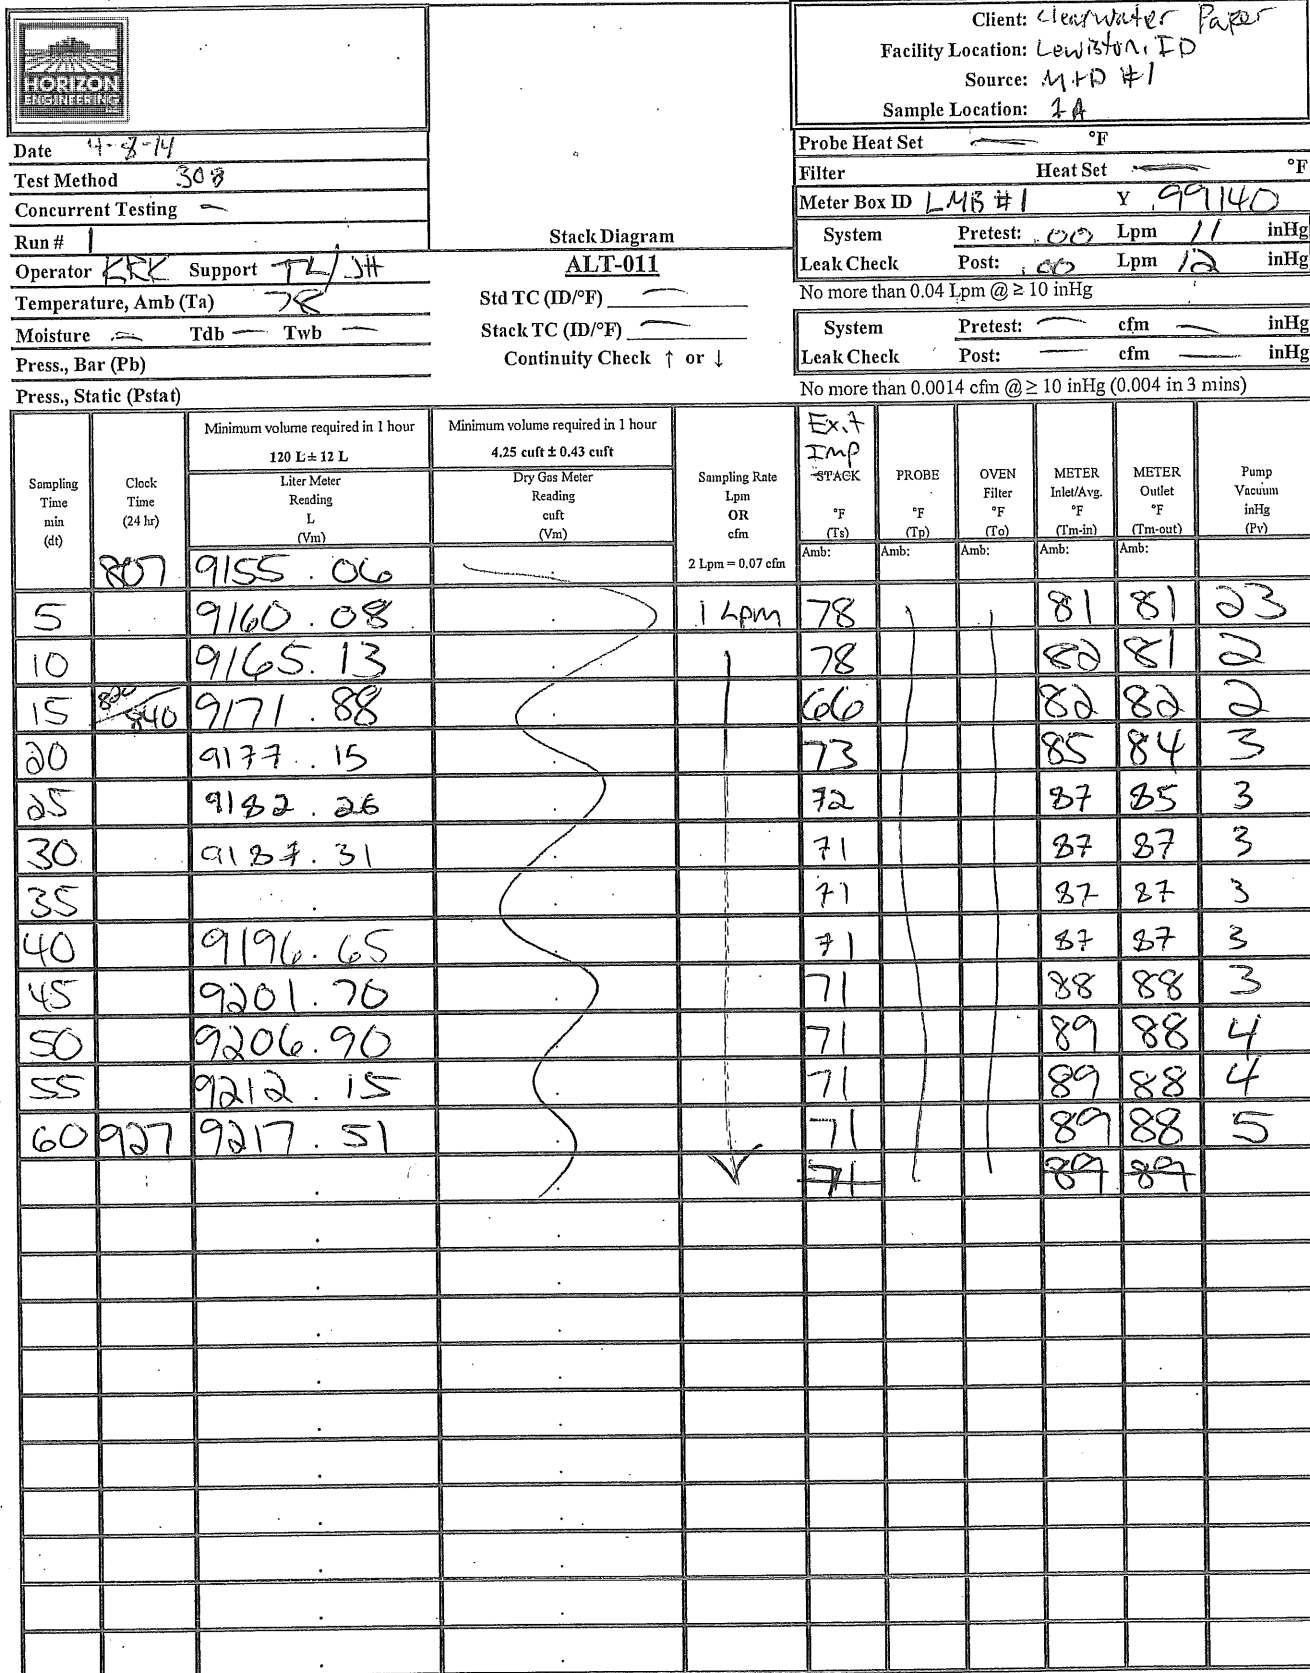 HORIZON
ENGINEERING
Client: Clearwater Paper
Facility Location: Lewiston, ID
Source: M+D #1
Sample Location: 1A
Date 4-8-14
Test Method 308
Concurrent Testing —
Run # 1
Operator KRK Support TL/JH
Temperature, Amb (Ta) 78
Moisture — Tdb — Twb —
Press., Bar (Pb)
Press., Static (Pstat)
Stack Diagram
ALT-011
Std TC (ID/°F) —
Stack TC (ID/°F) —
Continuity Check ↑ or ↓
Probe Heat Set — °F
Filter Heat Set — °F
Meter Box ID LMB #1 Y .99140
System Pretest: .00 Lpm 11 inHg
Leak Check Post: .00 Lpm 12 inHg
No more than 0.04 Lpm @ ≥ 10 inHg
System Pretest: — cfm — inHg
Leak Check Post: — cfm — inHg
No more than 0.0014 cfm @ ≥ 10 inHg (0.004 in 3 mins)
Sampling Time min (dt)
Clock Time (24 hr)
Minimum volume required in 1 hour
120 L ± 12 L
Liter Meter Reading L (Vm)
Minimum volume required in 1 hour
4.25 cuft ± 0.43 cuft
Dry Gas Meter Reading cuft (Vm)
Sampling Rate Lpm OR cfm
2 Lpm = 0.07 cfm
Ex.t Imp STACK °F (Ts) Amb:
PROBE °F (Tp) Amb:
OVEN Filter °F (To) Amb:
METER Inlet/Avg. °F (Tm-in) Amb:
METER Outlet °F (Tm-out) Amb:
Pump Vacuum inHg (Pv)
807 9155.06
5 9160.08 1 Lpm 78 81 81 23
10 9165.13 78 82 81 2
15 820/840 9171.88 66 82 82 2
20 9177.15 73 85 84 3
25 9182.26 72 87 85 3
30 9187.31 71 87 87 3
35 . 71 87 87 3
40 9196.65 71 87 87 3
45 9201.70 71 88 88 3
50 9206.90 71 89 88 4
55 9212.15 71 89 88 4
60 927 9217.51 71 89 88 5
71 89 89